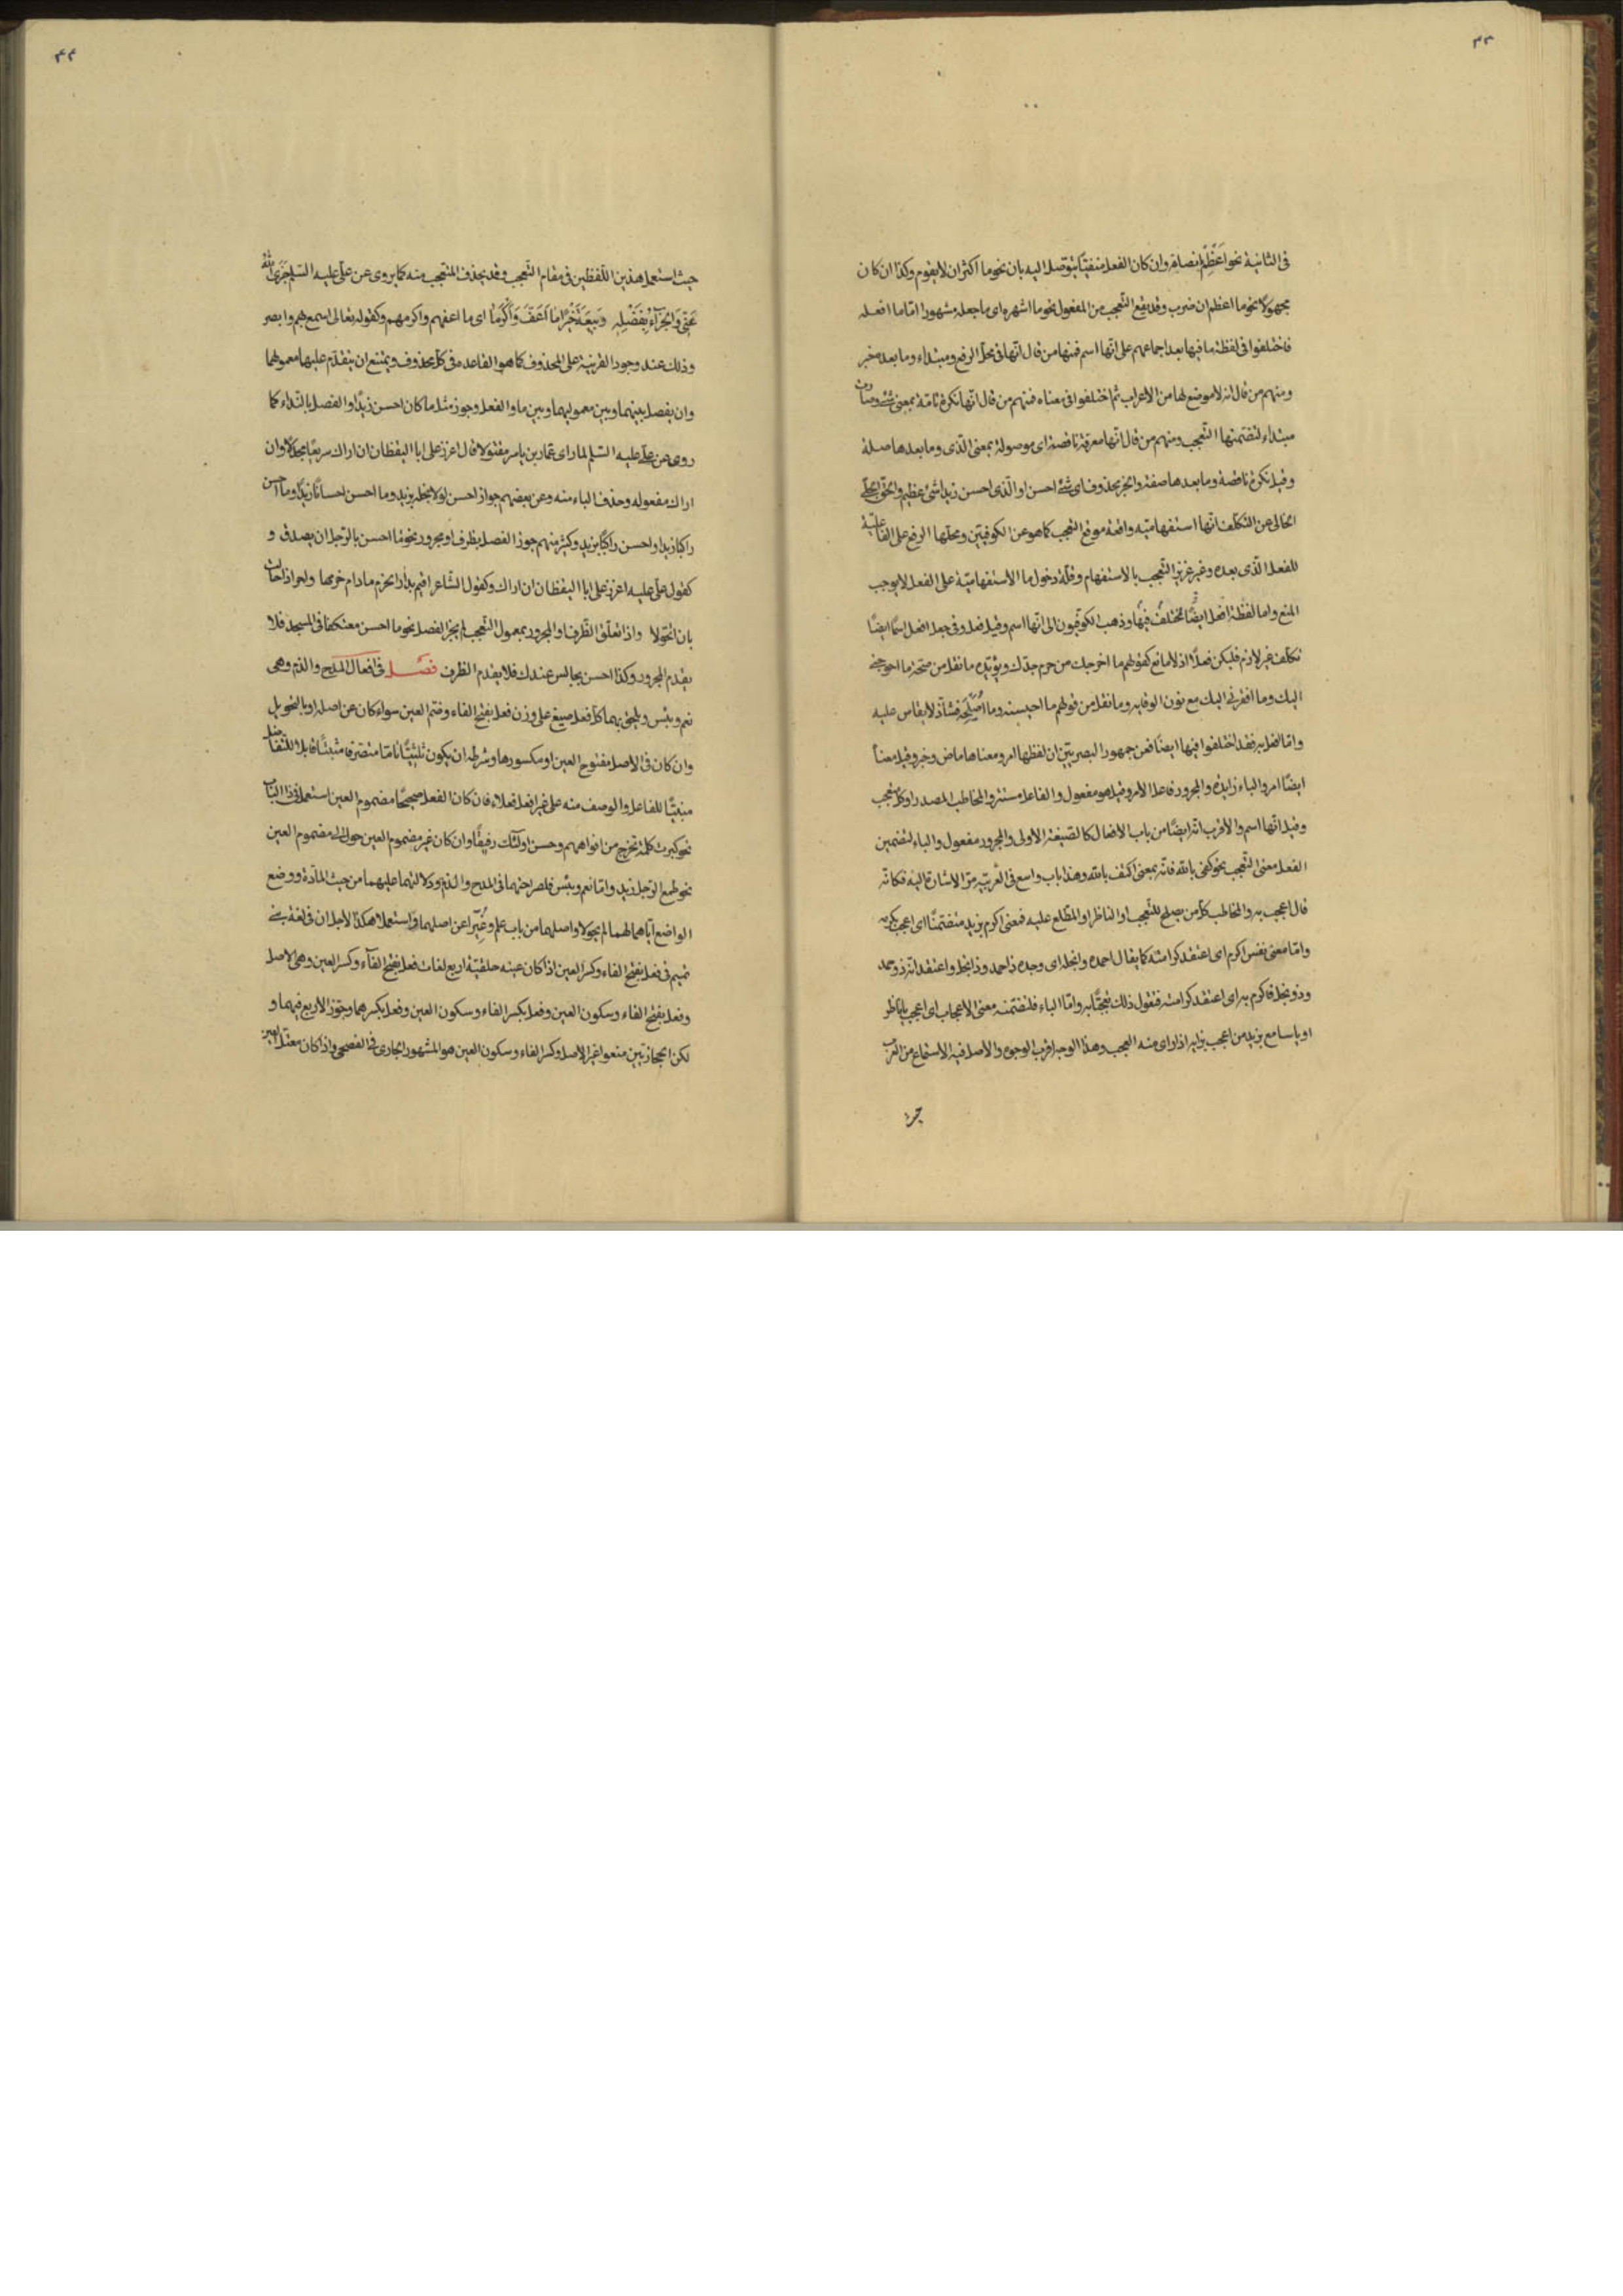 ٤٣
فى الثانية نحو اعظم بانصافه وان كان الفعل منفيا يتوصل اليه بان نحو ما اكثر ان لا يقوم وكذا ان كان
مجهولا نحو ما اعظم ان ضرب وقد يقع التعجب من المفعول نحو ما اشهره اى ما جعله مشهورا اما ما افعله
فاختلفوا فى لفظة ما فيها بعد اجماعهم على انها اسم فمنها من قال انها فى محل الرفع ومبتداء وما بعده خبر
ومنهم من قال انه لا موضع لها من الاعراب ثم اختلفوا فى معناه فمنهم من قال انها نكرة تامة بمعنى شئ
مبتداء لتضمنها التعجب ومنهم من قال انها معرفة ناقصة اى موصولة بمعنى الذى وما بعدها صلة
وقيل نكرة ناقصة وما بعدها صفة والخبر محذوف اى شئ احسن او الذى احسن زيدا شئ عظيم والحق الجلى
الخالى عن التكلف انها استفهامية واقعة موقع التعجب كما هو عن الكوفيين ومحلها الرفع على الفاعلية
للفعل الذى بعده وغير عزيز التعجب بالاستفهام وقلة دخول ما الاستفهامية على الفعل لا يوجب
المنع واما لفظة افعل ايضا تختلف فيها وذهب الكوفيون الى انها اسم وقيل فعل وفى جعل افعل اسما ايضا
تكلف غير لازم فليكن فعلا اذ لا مانع كقولهم ما اخرجك من حرم جدك ويؤيده ما نقل من صحة ما احوجنى
اليك وما افقرنى اليك مع نون الوقاية وما نقل من قولهم ما احيسنه وما اميلحه فشاذ لا يقاس عليه
واما افعل به فقد اختلفوا فيها ايضا فعن جمهور البصريين ان لفظها امر ومعناها ماض وخبر وقيل معناً
ايضا امر والباء زايدة والمجرور فاعل الامر وقيل هو مفعول والفاعل مستتر والمخاطب المصدر او كل متعجب
وقيل انها اسم والاقرب انه ايضا من باب الافعال كالصيغة الاولى والمجرور مفعول والباء لتضمين
الفعل معنى التعجب نحو كفى بالله فانه بمعنى اكتف بالله وهذا باب واسع فى العربية مر الاشارة اليه فكانه
قال اعجب به والمخاطب كل من يصلح للتعجب او الناظر او المطلع عليه فمعنى اكرم بزيد متضمنا اى اعجب بكرمه
واما معنى نفس اكرم اى اعتقد كرامته كما يقال احمده وابخله اى وجده ذا حمد وذا بخل واعتقد انه ذو حمد
وذو بخل فاكرم به اى اعتقد كرامته فنقول ذلك تعجبا به واما الباء فلتضمنه معنى الاعجاب اى اعجب يا ناظر
او يا سامع بزيد من اعجب بزايد اذا راى منه العجب وهذا الوجه اقرب الوجوه والاصل فيه الاستماع من العرب
٤٤
حيث استعمل هذين اللفظين فى مقام التعجب وقد يحذف المتعجب منه كما يروى عن على عليه السلم جزى الله
عنى والجزآء بفضله ربيعة خيرا ما اعف واكرما اى ما اعفهم واكرمهم وكقوله تعالى اسمع بهم وابصر
وذلك عند وجود القرينة على المحذوف كما هو القاعدة فى كل محذوف ويمتنع ان يتقدم عليها معمولها
وان يفصل بينهما وبين معموليهما وبين ما والفعل وجوز مثل ما كان احسن زيدا والفصل بالنداء كما
روى عن على عليه السلم لما راى عمار بن ياسر مقتولا قال اعزز على ابا اليقظان ان اراك سريعا مجدلا وان
اراك مفعوله وحذف الباء منه وعن بعضهم جواز احسن لولا بخله بزيد وما احسن احسانا زيدا وما احسن
راكبا زيدا واحسن راكبا بزيد وكثير منهم جوز الفصل بظرف او مجرور نحو ما احسن بالرجل ان يصدق و
كقول على عليه اعزز على ابا اليقظان ان اراك وكقول الشاعر اقيم بدار الحزم ما دام حزمها واحر اذا حالت
بان اتحولا واذا تعلق الظرف او المجرور بمعمول التعجب لم يجز الفصل نحو ما احسن معتكفا فى المسجد فلا
يقدم المجرور وكذا احسن بجالس عندك فلا يقدم الظرف فصل فى افعال المدح والذم وهى
نعم وبئس ويلحق بهما كل فعل صيغ على وزن فعل بفتح الفاء وضم العين سواء كان عن اصله او بالتحويل
وان كان فى الاصل مفتوح العين او مكسورها وشرطه ان يكون ثلثيا تاما متصرفا مثبتا قابلا للتفاضل
مبنيا للفاعل والوصف منه على غير افعل فعلاء فان كان الفعل صحيحا مضموم العين استعمل فى ذا الباب
نحو كبرت كلمة تخرج من افواههم وحسن اولئك رفيقا وان كان غير مضموم العين حول الى مضموم العين
نحو طمع الرجل زيد واما نعم وبئس فلصراحتهما فى المدح والذم ودلالتهما عليهما من حيث المادة ووضع
الواضع اياهما لهما لم يحولا واصلهما من باب علم وغيرا عن اصلهما واستعملا هكذا لاجل ان فى لغة بنى
تميم فى فعل بفتح الفاء وكسر العين اذا كان عينه حلقية اربع لغات فعل بفتح الفآء وكسر العين وهى الاصل
وفعل بفتح الفاء وسكون العين وفعل بكسر الفاء وسكون العين وفعل بكسرهما ويجوز الاربع فيهما و
لكن الحجازيين منعوا غير الاصل وكسر الفاء وسكون العين هو المشهور الجارى فى الفصحى واذا كان معتل العين